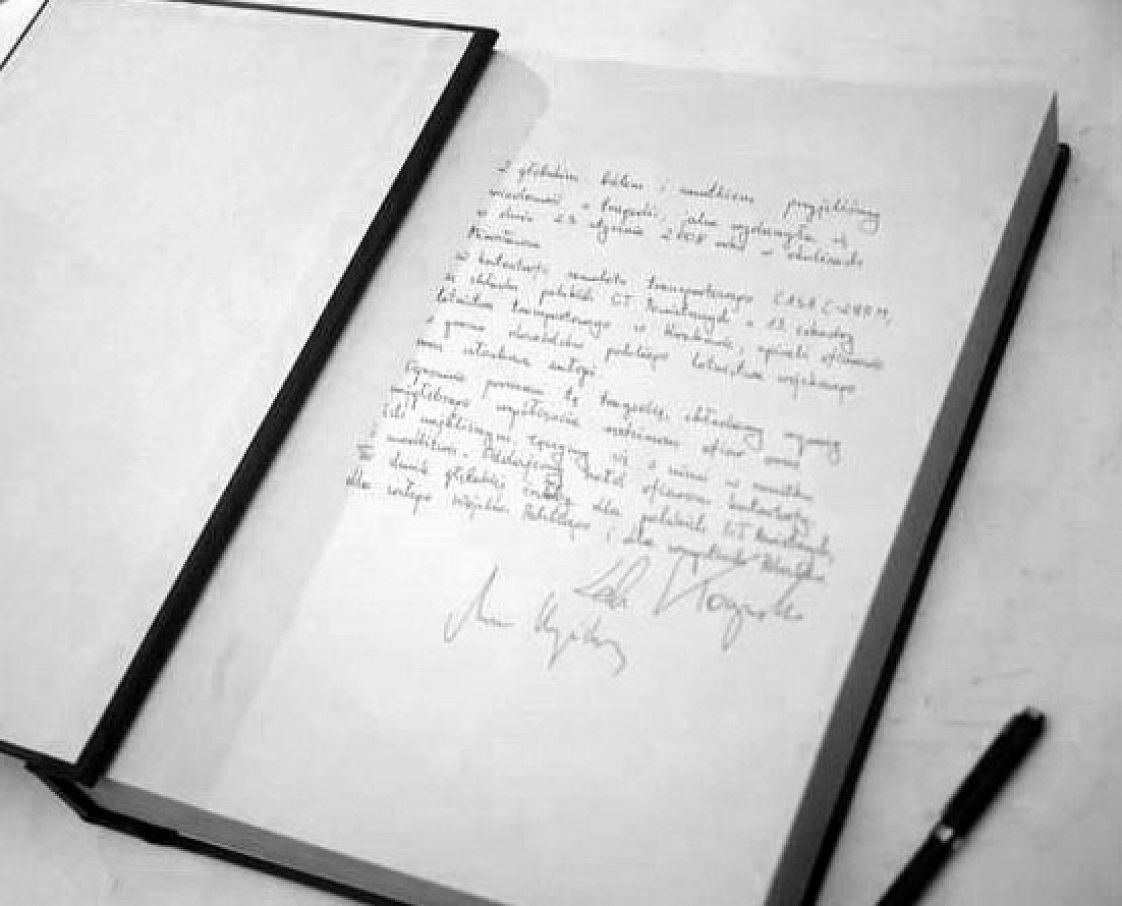 Z głębokim bólem i smutkiem przyjęliśmy
wiadomość o tragedii, jaka wydarzyła się
w dniu 23 stycznia 2008 roku w okolicach
Mirosławca
w katastrofie samolotu transportowego CASA C-295M,
polskich Sił Powietrznych z 13 eskadry
lotnictwa transportowego w Krakowie, oficerowie
z grona dowódców polskiego lotnictwa wojskowego
oraz załogi
tą tragedią, składamy wyrazy
współczucia rodzinom ofiar oraz
ich najbliższym, łącząc się z nimi w smutku
i modlitwie. Oddajemy hołd ofiarom katastrofy
głębokiej dla polskich Sił Powietrznych,
dla całego Wojska Polskiego i dla wszystkich Polaków
Lech Kaczyński